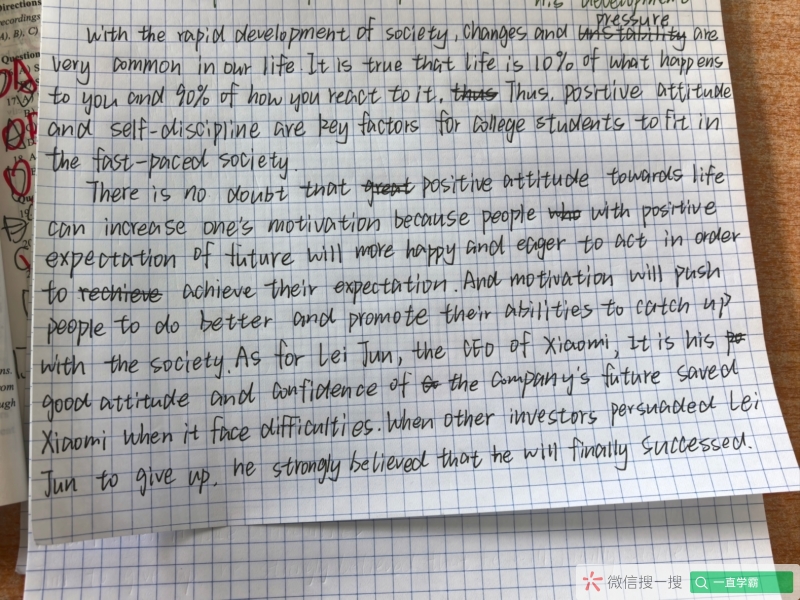 his development
pressure
With the rapid development of society, changes and unstability are
very common in our life. It is true that life is 10% of what happens
to you and 90% of how you react to it. thus Thus, positive attitude
and self-discipline are key factors for college students to fit in
the fast-paced society.
There is no doubt that great positive attitude towards life
can increase one's motivation because people who with positive
expectation of future will more happy and eager to act in order
to rechieve achieve their expectation. And motivation will push
people to do better and promote their abilities to catch up
with the society. As for Lei Jun, the CEO of Xiaomi, It is his
good attitude and confidence of the company's future saved
Xiaomi when it face difficulties. When other investors persuaded Lei
Jun to give up, he strongly believed that he will finally successed.
Directions
recordings
A), B), C)
Question
微信搜一搜
一直学霸